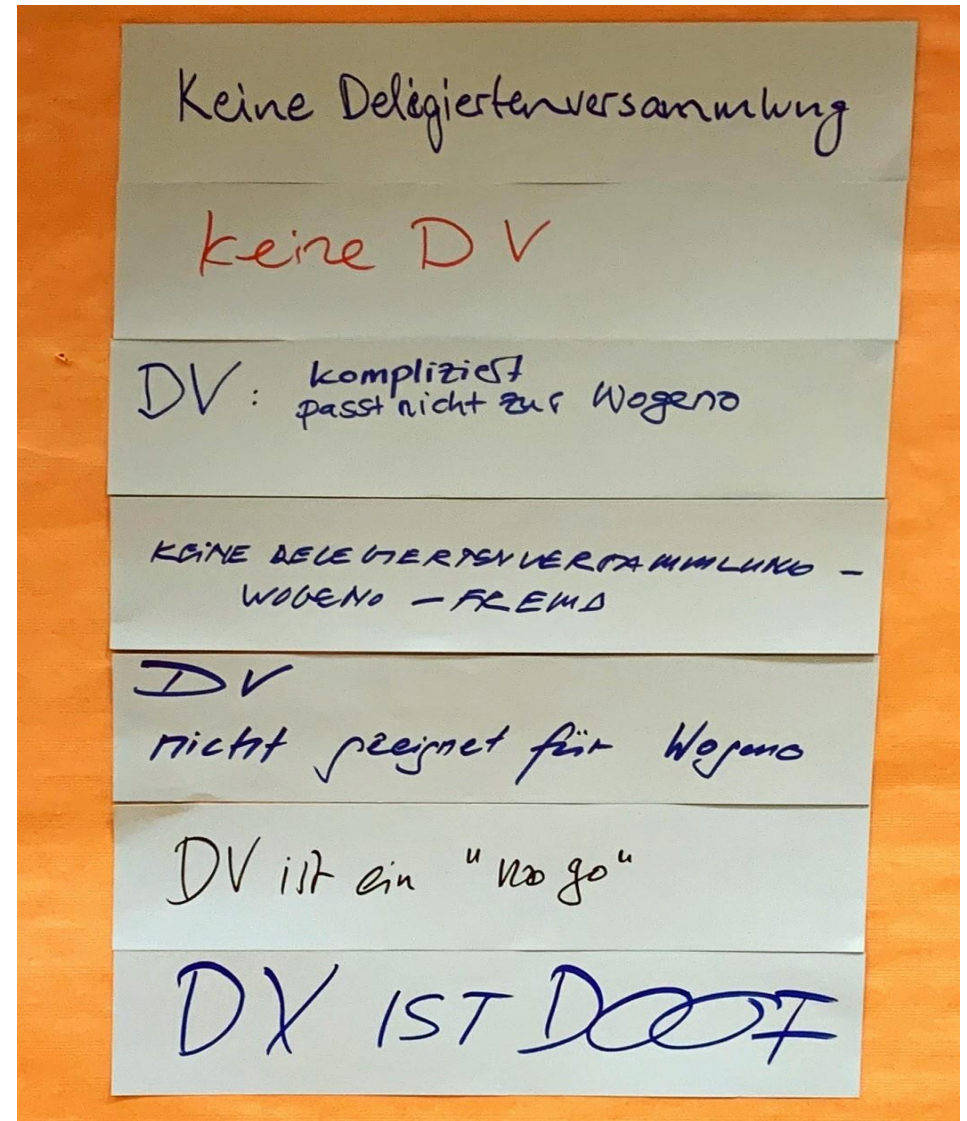 Keine Delegiertenversammlung
keine DV
DV: kompliziert
passt nicht zur Wogeno
KEINE DELEGIERTENVERSAMMLUNG -
WOGENO - FREMD
DV
nicht geeignet für Wogeno
DV ist ein "no go"
DV IST DOOF